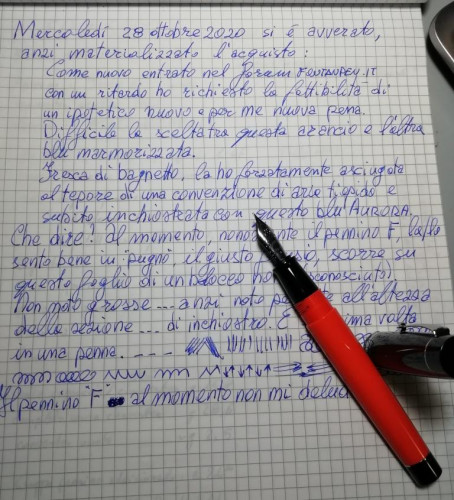 Mercoledì 28 ottobre 2020 si è avverato,
anzi materializzato l'acquisto:
Come nuovo entrato nel forum FOUNTAINPEN.IT
con un ritardo ho richiesto la fattibilità di
un ipotetico nuovo e per me nuova penna.
Difficile la scelta tra questa arancio e l'altra
blu marmorizzata.
Fresca di bagnetto, la ho forzatamente asciugata
al tepore di una convenzione di aria tiepida e
subito inchiostrata con questo blu AURORA.
Che dire! Al momento, nonostante il pennino F,
sento bene in pugno il giusto scorre su
questo foglio di un blocco
Non noto grosse ... anzi noto all'altezza
della sezione ... di inchiostro. È volta
in una penna. ----
Il pennino "F" al momento non mi